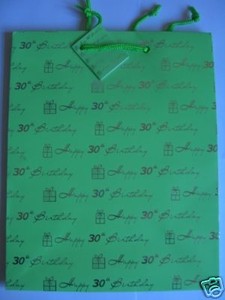 30th Birthday Happy 30th Birthday
Happy 30th Birthday Happy
30th Birthday Happy 30th Birthday
Happy 30th Birthday Happy
30th Birthday Happy 30th Birthday
Happy 30th Birthday Happy
30th Birthday Happy 30th Birthday
Happy 30th Birthday Happy
30th Birthday Happy 30th Birthday
Happy 30th Birthday